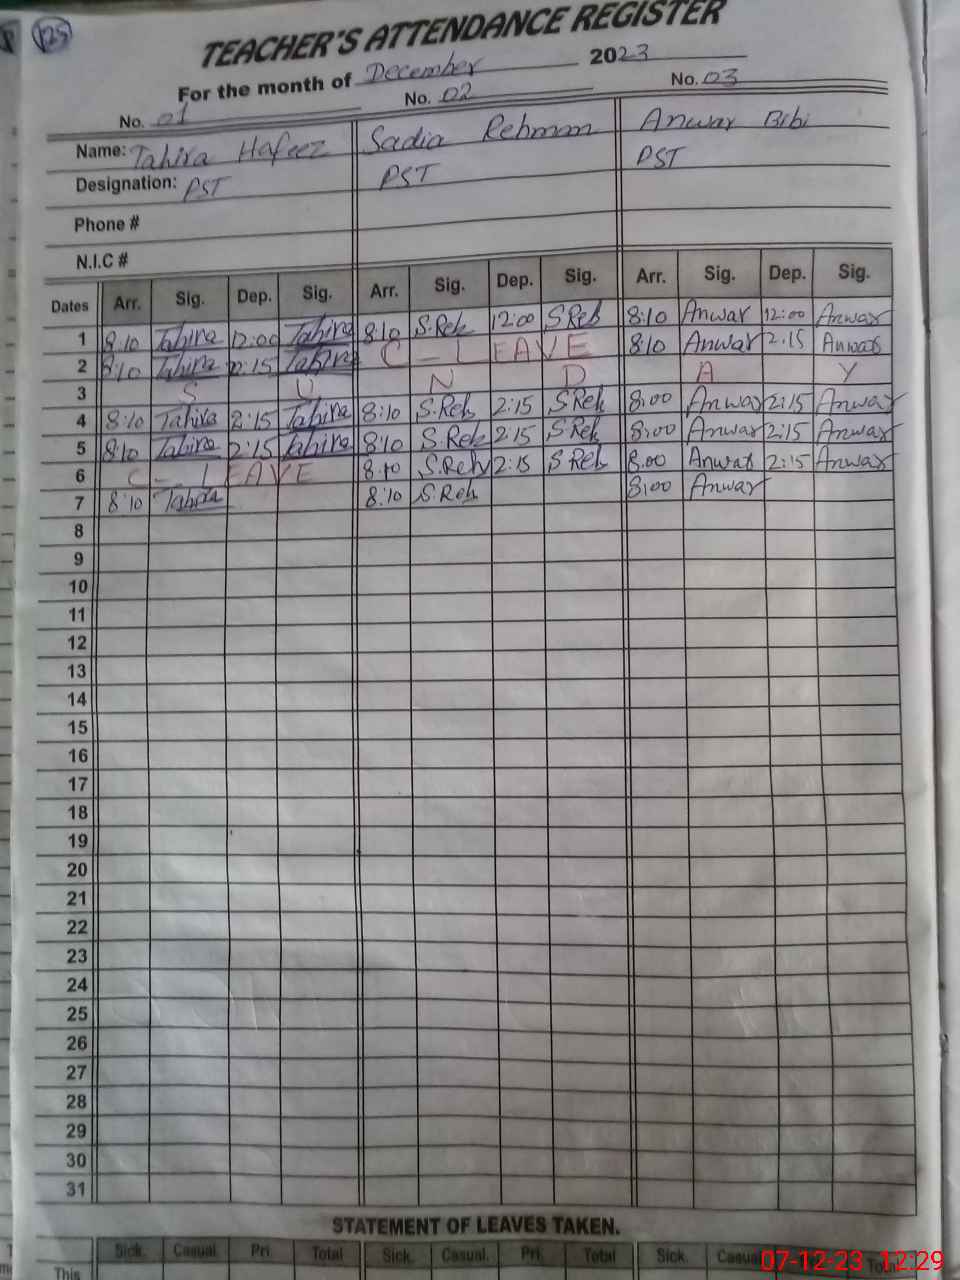 125
TEACHER'S ATTENDANCE REGISTER
For the month of December 2023
No. 01 No. 02 No. 03
Name: Tahira Hafeez Sadia Rehman Anwar Bibi
Designation: PST PST PST
Phone #
N.I.C #
Dates Arr. Sig. Dep. Sig. Arr. Sig. Dep. Sig. Arr. Sig. Dep. Sig.
1 8:10 Tahira 12:00 Tahira 8:10 S.Reh 12:00 S.Reh 8:10 Anwar 12:00 Anwar
2 8:10 Tahira 2:15 Tahira C - LEAVE 8:10 Anwar 2:15 Anwar
3 S U N D A Y
4 8:10 Tahira 2:15 Tahira 8:10 S.Reh 2:15 S.Reh 8:00 Anwar 2:15 Anwar
5 8:10 Tahira 2:15 Tahira 8:10 S.Reh 2:15 S.Reh 8:00 Anwar 2:15 Anwar
6 C - LEAVE 8:10 S.Reh 2:15 S.Reh 8:00 Anwar 2:15 Anwar
7 8:10 Tahira 8:10 S.Reh 8:00 Anwar
8
9
10
11
12
13
14
15
16
17
18
19
20
21
22
23
24
25
26
27
28
29
30
31
STATEMENT OF LEAVES TAKEN.
Sick. Casual. Pri. Total Sick. Casual. Pri. Total Sick. Casual Total
This
07-12-23 12:29